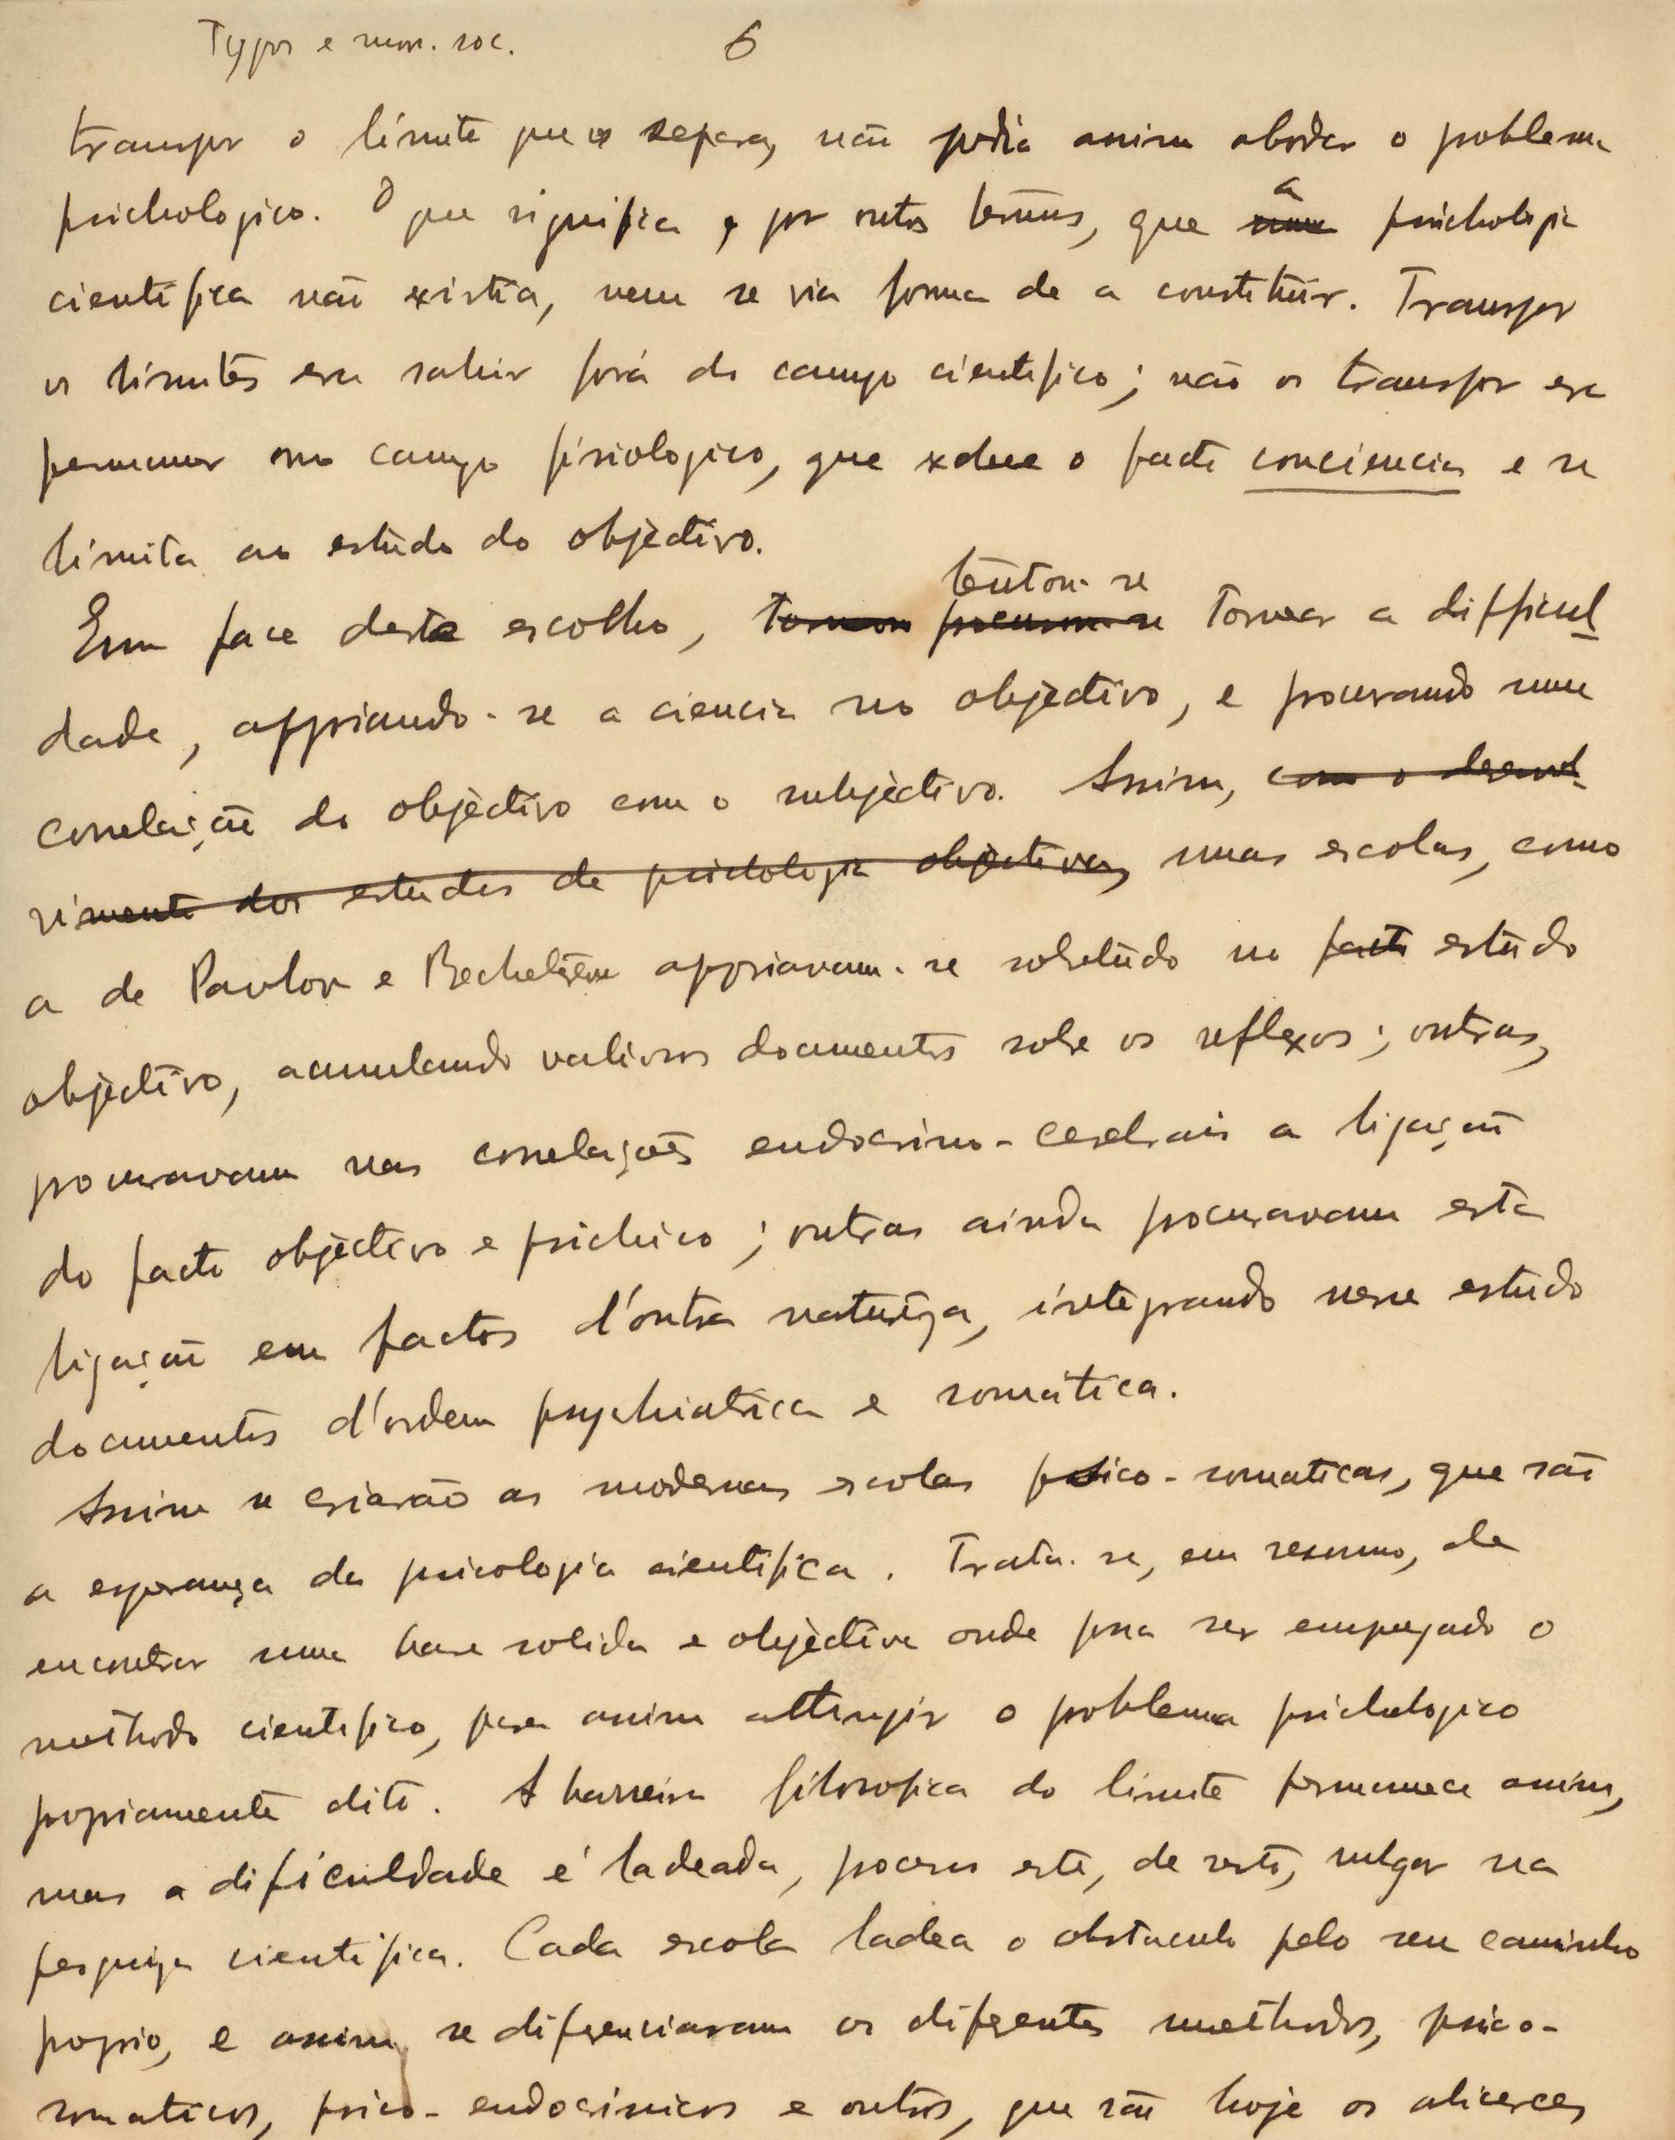 Typos e mov. soc. 6
transpor o limite que os separa, não podia assim abordar o problema
psichologico. O que significa, por outros termos, que a psichologia
cientifica não existia, nem se via forma de a constituir. Transpor
os limites era sahir fora do campo cientifico; não os transpor era
permanecer no campo fisiologico, que exclue o facto conciencia e se
limita ao estudo do objectivo.
Em face deste escolho, tentou-se tornear a difficul
dade, appoiando-se a ciencia no objectivo, e procurando uma
correlação do objectivo com o subjectivo. Assim, com o desenvol-
vimento dos estudos de psicologia objectiva, umas escolas, como
a de Pavlov e Bechterew appoiavam-se sobretudo no facto estudo
objectivo, acumulando valiosos documentos sobre os reflexos; outras,
procuravam nas correlações endocrino-cerebrais a ligação
do facto objectivo e psichico; outras ainda procuravam esta
ligação em factos d'outra natureza, integrando nesse estudo
documentos d'ordem psychiatrica e somática.
Assim se criarão as modernas escolas psico-somaticas, que são
a esperança da psicologia cientifica. Trata-se, em resumo, de
encontrar uma base solida e objectiva onde possa ser empregado o
methodo cientifico, para assim attingir o problema psichologico
propriamente dito. A barreira filosofica do limite permanece assim,
mas a dificuldade é ladeada, processo este, de resto, vulgar na
pesquiza cientifica. Cada escola ladea o obstaculo pelo seu caminho
proprio, e assim se diferenciaram os diferentes methodos, psico-
somaticos, psico-endocrinicos e outros, que são hoje os alicerces